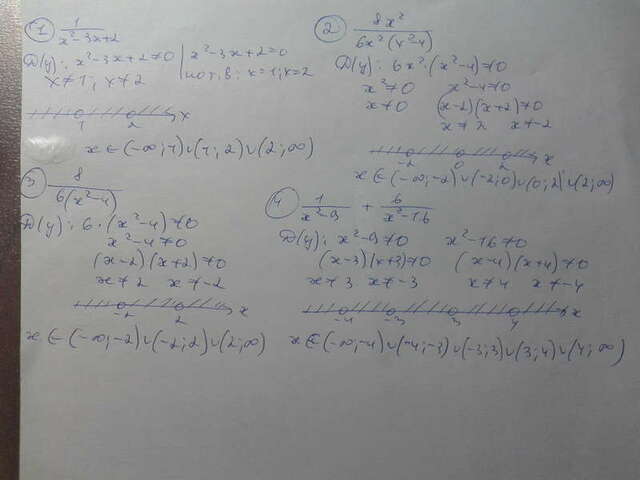 1) 1/(x²-3x+2)
Д(у): x²-3x+2≠0 | x²-3x+2=0
x≠1; x≠2 | по т.В: x=1; x=2
1 2 x
x∈(-∞;1)∪(1;2)∪(2;∞)
2) 8x²/(6x²(x²-4))
Д(у): 6x²·(x²-4)≠0
x²≠0 x²-4≠0
x≠0 (x-2)(x+2)≠0
x≠2 x≠-2
-2 0 2 x
x∈(-∞;-2)∪(-2;0)∪(0;2)∪(2;∞)
3) 8/(6(x²-4))
Д(у): 6·(x²-4)≠0
x²-4≠0
(x-2)(x+2)≠0
x≠2 x≠-2
-2 2 x
x∈(-∞;-2)∪(-2;2)∪(2;∞)
4) 1/(x²-9) + 6/(x²-16)
Д(у): x²-9≠0 x²-16≠0
(x-3)(x+3)≠0 (x-4)(x+4)≠0
x≠3 x≠-3 x≠4 x≠-4
-4 -3 3 4 x
x∈(-∞;-4)∪(-4;-3)∪(-3;3)∪(3;4)∪(4;∞)